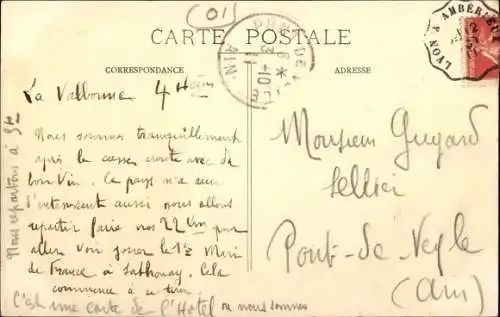 (01)
CARTE POSTALE
CORRESPONDANCE
ADRESSE
LYON A AMBÉRIEU
PONT-DE-VEYLE
AIN
La Valbonne 4 H
Nous sommes tranquillement
après le casse croute avec du
bon Vin. Le pays n'a rien
d'interessant aussi nous allons
repartir faire nos 22 Km pour
aller Voir jouer le 1er Mari
de France à Sathonay. Cela
commence à se
C'est une carte de l'Hotel ou nous sommes
Nous repartons à 5H
Monsieur Guyard
Sellier
Pont-de-Veyle
(Ain)